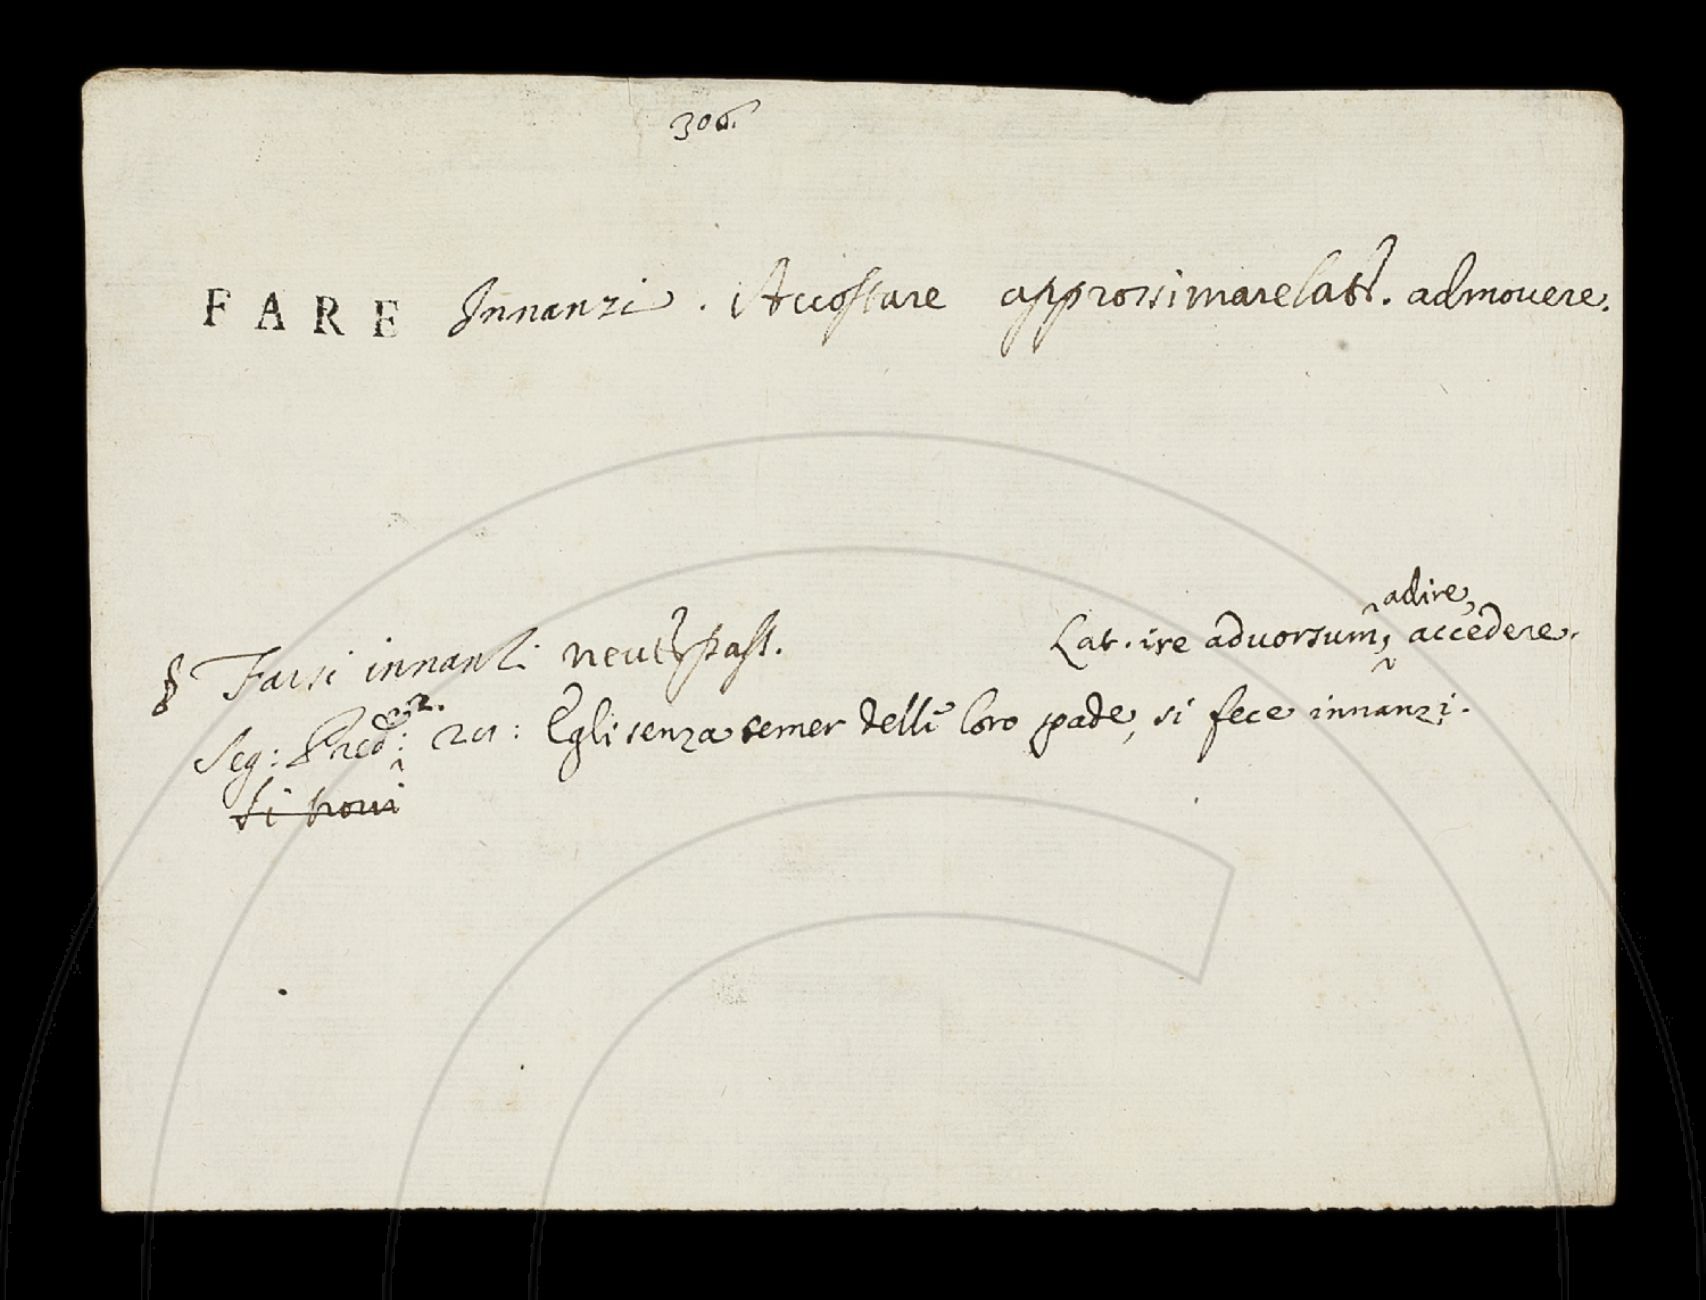 306.
FARE Innanzi. Accostare approssimare latt. admouere.
adire,
§ Farsi innanzi neutr pass. Lat. ire aduorsum, accedere.
P. 2.
Seg: Pred: 201: Egli senza temer delli loro pade, si fece innanzi.
si trovi